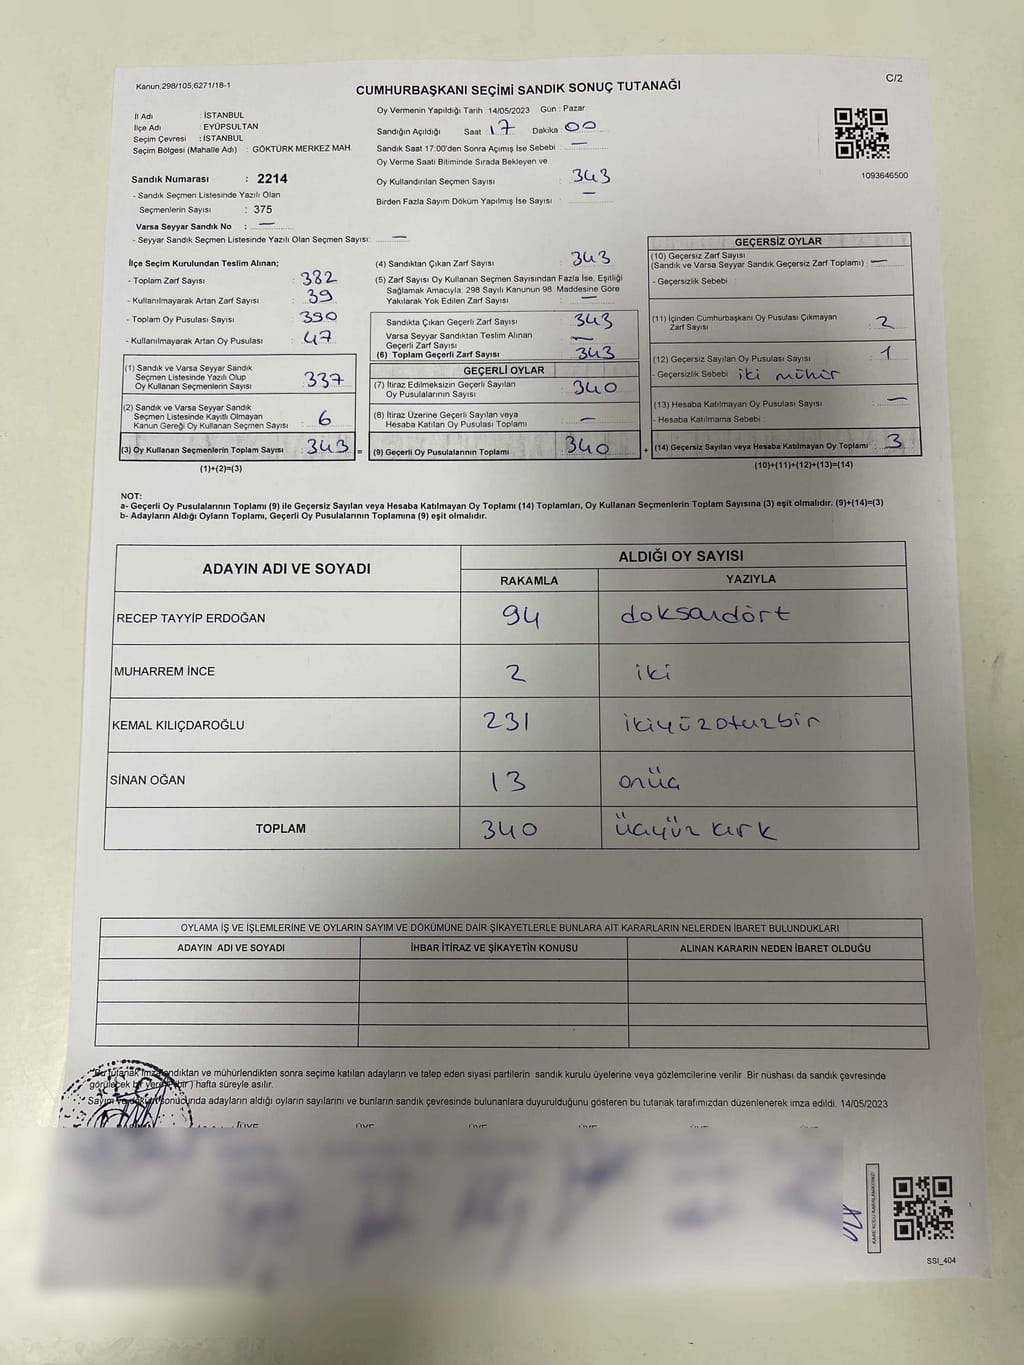 Kanun;298/105;6271/18-1
C/2
CUMHURBAŞKANI SEÇİMİ SANDIK SONUÇ TUTANAĞI
İl Adı : İSTANBUL
İlçe Adı : EYÜPSULTAN
Seçim Çevresi : İSTANBUL
Seçim Bölgesi (Mahalle Adı) : GÖKTÜRK MERKEZ MAH.
Sandık Numarası : 2214
- Sandık Seçmen Listesinde Yazılı Olan
Seçmenlerin Sayısı : 375
Varsa Seyyar Sandık No : —
- Seyyar Sandık Seçmen Listesinde Yazılı Olan Seçmen Sayısı: —
Oy Vermenin Yapıldığı Tarih :14/05/2023 Gün : Pazar
Sandığın Açıldığı Saat : 17 Dakika : 00
Sandık Saat 17:00'den Sonra Açımış İse Sebebi : —
Oy Verme Saati Bitiminde Sırada Bekleyen ve
Oy Kullandırılan Seçmen Sayısı : 343
Birden Fazla Sayım Döküm Yapılmış İse Sayısı : —
1093646500
İlçe Seçim Kurulundan Teslim Alınan;
- Toplam Zarf Sayısı : 382
- Kullanılmayarak Artan Zarf Sayısı : 39
- Toplam Oy Pusulası Sayısı : 390
- Kullanılmayarak Artan Oy Pusulası : 47
(1) Sandık ve Varsa Seyyar Sandık
Seçmen Listesinde Yazılı Olup
Oy Kullanan Seçmenlerin Sayısı : 337
(2) Sandık ve Varsa Seyyar Sandık
Seçmen Listesinde Kayıtlı Olmayan
Kanun Gereği Oy Kullanan Seçmen Sayısı : 6
(3) Oy Kullanan Seçmenlerin Toplam Sayısı : 343 =
(1)+(2)=(3)
(4) Sandıktan Çıkan Zarf Sayısı : 343
(5) Zarf Sayısı Oy Kullanan Seçmen Sayısından Fazla İse, Eşitliği
Sağlamak Amacıyla; 298 Sayılı Kanunun 98. Maddesine Göre
Yakılarak Yok Edilen Zarf Sayısı : —
Sandıkta Çıkan Geçerli Zarf Sayısı : 343
Varsa Seyyar Sandıktan Teslim Alınan
Geçerli Zarf Sayısı : —
(6) Toplam Geçerli Zarf Sayısı : 343
GEÇERLİ OYLAR
(7) İtiraz Edilmeksizin Geçerli Sayılan
Oy Pusulalarının Sayısı : 340
(8) İtiraz Üzerine Geçerli Sayılan veya
Hesaba Katılan Oy Pusulası Toplamı : —
(9) Geçerli Oy Pusulalarının Toplamı : 340 +
GEÇERSİZ OYLAR
(10) Geçersiz Zarf Sayısı
(Sandık ve Varsa Seyyar Sandık Geçersiz Zarf Toplamı) : —
- Geçersizlik Sebebi :
(11) İçinden Cumhurbaşkanı Oy Pusulası Çıkmayan
Zarf Sayısı : 2
(12) Geçersiz Sayılan Oy Pusulası Sayısı : 1
- Geçersizlik Sebebi iki mühür
(13) Hesaba Katılmayan Oy Pusulası Sayısı : —
- Hesaba Katılmama Sebebi
(14) Geçersiz Sayılan veya Hesaba Katılmayan Oy Toplamı : 3
(10)+(11)+(12)+(13)=(14)
NOT:
a- Geçerli Oy Pusulalarının Toplamı (9) ile Geçersiz Sayılan veya Hesaba Katılmayan Oy Toplamı (14) Toplamları, Oy Kullanan Seçmenlerin Toplam Sayısına (3) eşit olmalıdır. (9)+(14)=(3)
b- Adayların Aldığı Oyların Toplamı, Geçerli Oy Pusulalarının Toplamına (9) eşit olmalıdır.
ADAYIN ADI VE SOYADI
ALDIĞI OY SAYISI
RAKAMLA YAZIYLA
RECEP TAYYİP ERDOĞAN 94 doksandört
MUHARREM İNCE 2 iki
KEMAL KILIÇDAROĞLU 231 ikiyüzotuzbir
SİNAN OĞAN 13 onüç
TOPLAM 340 üçyüz kırk
OYLAMA İŞ VE İŞLEMLERİNE VE OYLARIN SAYIM VE DÖKÜMÜNE DAİR ŞİKAYETLERLE BUNLARA AİT KARARLARIN NELERDEN İBARET BULUNDUKLARI
ADAYIN ADI VE SOYADI İHBAR İTİRAZ VE ŞİKAYETİN KONUSU ALINAN KARARIN NEDEN İBARET OLDUĞU
Bu tutanak imzalandıktan ve mühürlendikten sonra seçime katılan adayların ve talep eden siyasi partilerin sandık kurulu üyelerine veya gözlemcilerine verilir. Bir nüshası da sandık çevresinde
görülecek bir yere (bir) hafta süreyle asılır.
Sayım ve döküm sonucunda adayların aldığı oyların sayılarını ve bunların sandık çevresinde bulunanlara duyurulduğunu gösteren bu tutanak tarafımızdan düzenlenerek imza edildi. 14/05/2023
ÜYE ÜYE ÜYE ÜYE ÜYE ÜYE
SSI_404